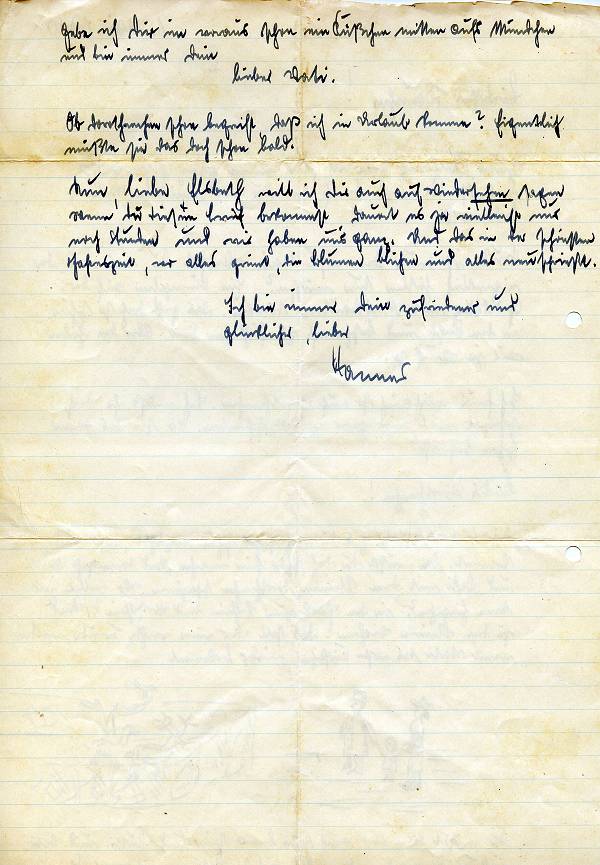 gebe ich Dir im voraus schon ein Küßchen mitten aufs Mündchen
und bin immer Dein
lieber Vati.
Ob Dorothenchen schon begreift, daß ich in Urlaub komme? Eigentlich
müßte sie das doch schon bald.
Nun, liebe Elsbeth will ich Dir auch auf Wiedersehen sagen
wenn Du diesen Brief bekommst dauert es ja vielleicht nur
noch Stunden und wir haben uns ganz. Und das in der schönsten
Jahreszeit, wo alles grünt, die Blumen blühen und alles neu sprießt.
Ich bin immer Dein zufriedener und
glücklicher, lieber
Hannes